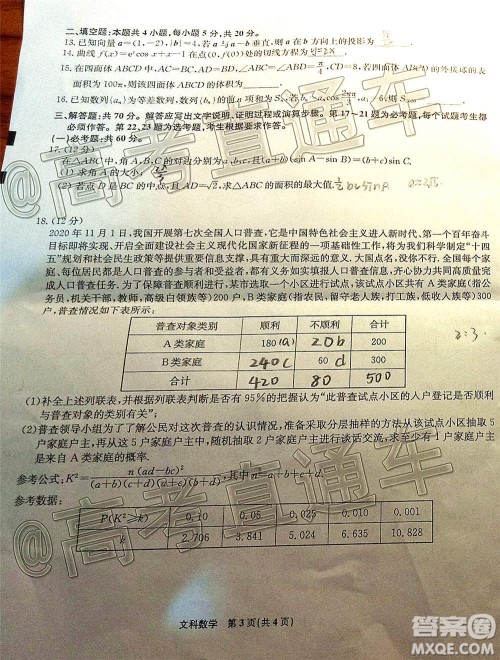 二、填空题:本题共4小题,每小题5分,共20分。
13.已知向量a=(1,-2),|b|=4,若a与a-b垂直,则a在b方向上的投影为
14.曲线f(x)=eˣcos x+x-1在点(0,f(0))处的切线方程为 y=2x
15.在四面体ABCD中,AC=BC,AD=BD,∠ABC=∠ABD=π/4,CD=8,若四面体ABCD的外接球的表
面积为100π,则该四面体ABCD的体积为
16.已知数列{aₙ}为等差数列,数列{bₙ}的前n项和为Sₙ,若
三、解答题:共70分。解答应写出文字说明、证明过程或演算步骤。第17~21题为必考题,每个试题考生都
必须作答。第22、23题为选考题,考生根据要求作答。
(一)必考题:共60分。
17.(12分)
在△ABC中,角A,B,C的对边分别为a,b,c,且(a+b)(sin A-sin B)=(b+c)sin C.
(1)求角A的大小;
(2)若点D是BC的中点,且AD=√2,求△ABC的面积的最大值.
18.(12分)
2020年11月1日,我国开展第七次全国人口普查,它是中国特色社会主义进入新时代,第一个百年奋斗
目标即将实现、开启全面建设社会主义现代化国家新征程的一项基础性工作,将为我们科学制定“十四
五”规划和社会民生政策等提供重要信息支撑,具有重大而深远的意义.大国点名,没你不行.全国每个家
庭、每位居民都是人口普查的参与者和受益者,都有义务如实填报人口普查信息,齐心协力共同高质量完
成人口普查任务.为了保障普查顺利进行,某市选取一个小区进行试点,该试点小区共有A类家庭(指公
务员,机关干部,教师,高级白领等)200户,B类家庭(指农民,留守老人族,打工族,低收入族等)300
户,普查情况如下表所示:
普查对象类别 顺利 不顺利 合计
A类家庭 180(a) 20b 200
B类家庭 240c 60d 300
合计 420 80 500
2:3.
(1)补全上述列联表,并根据列联表判断是否有95%的把握认为“此普查试点小区的入户登记是否顺利
与普查对象的类别有关”;
(2)普查领导小组为了了解公民对这次普查的认识情况,准备采取分层抽样的方法从该试点小区抽取5
户家庭户主,再从这5户家庭户主中,随机抽取2户家庭户主进行谈话交流,求至少有1户家庭户主
是来自A类家庭的概率.
参考公式:K²=n(ad-bc)²/(a+b)(c+d)(a+c)(b+d),其中n=a+b+c+d.
参考数据:
P(K²≥k) 0.10 0.05 0.025 0.010 0.001
k 2.706 3.841 5.024 6.635 10.828
文科数学 第3页(共4页)
@高考直通车
@高考直通车
答案圈
MXQE.COM